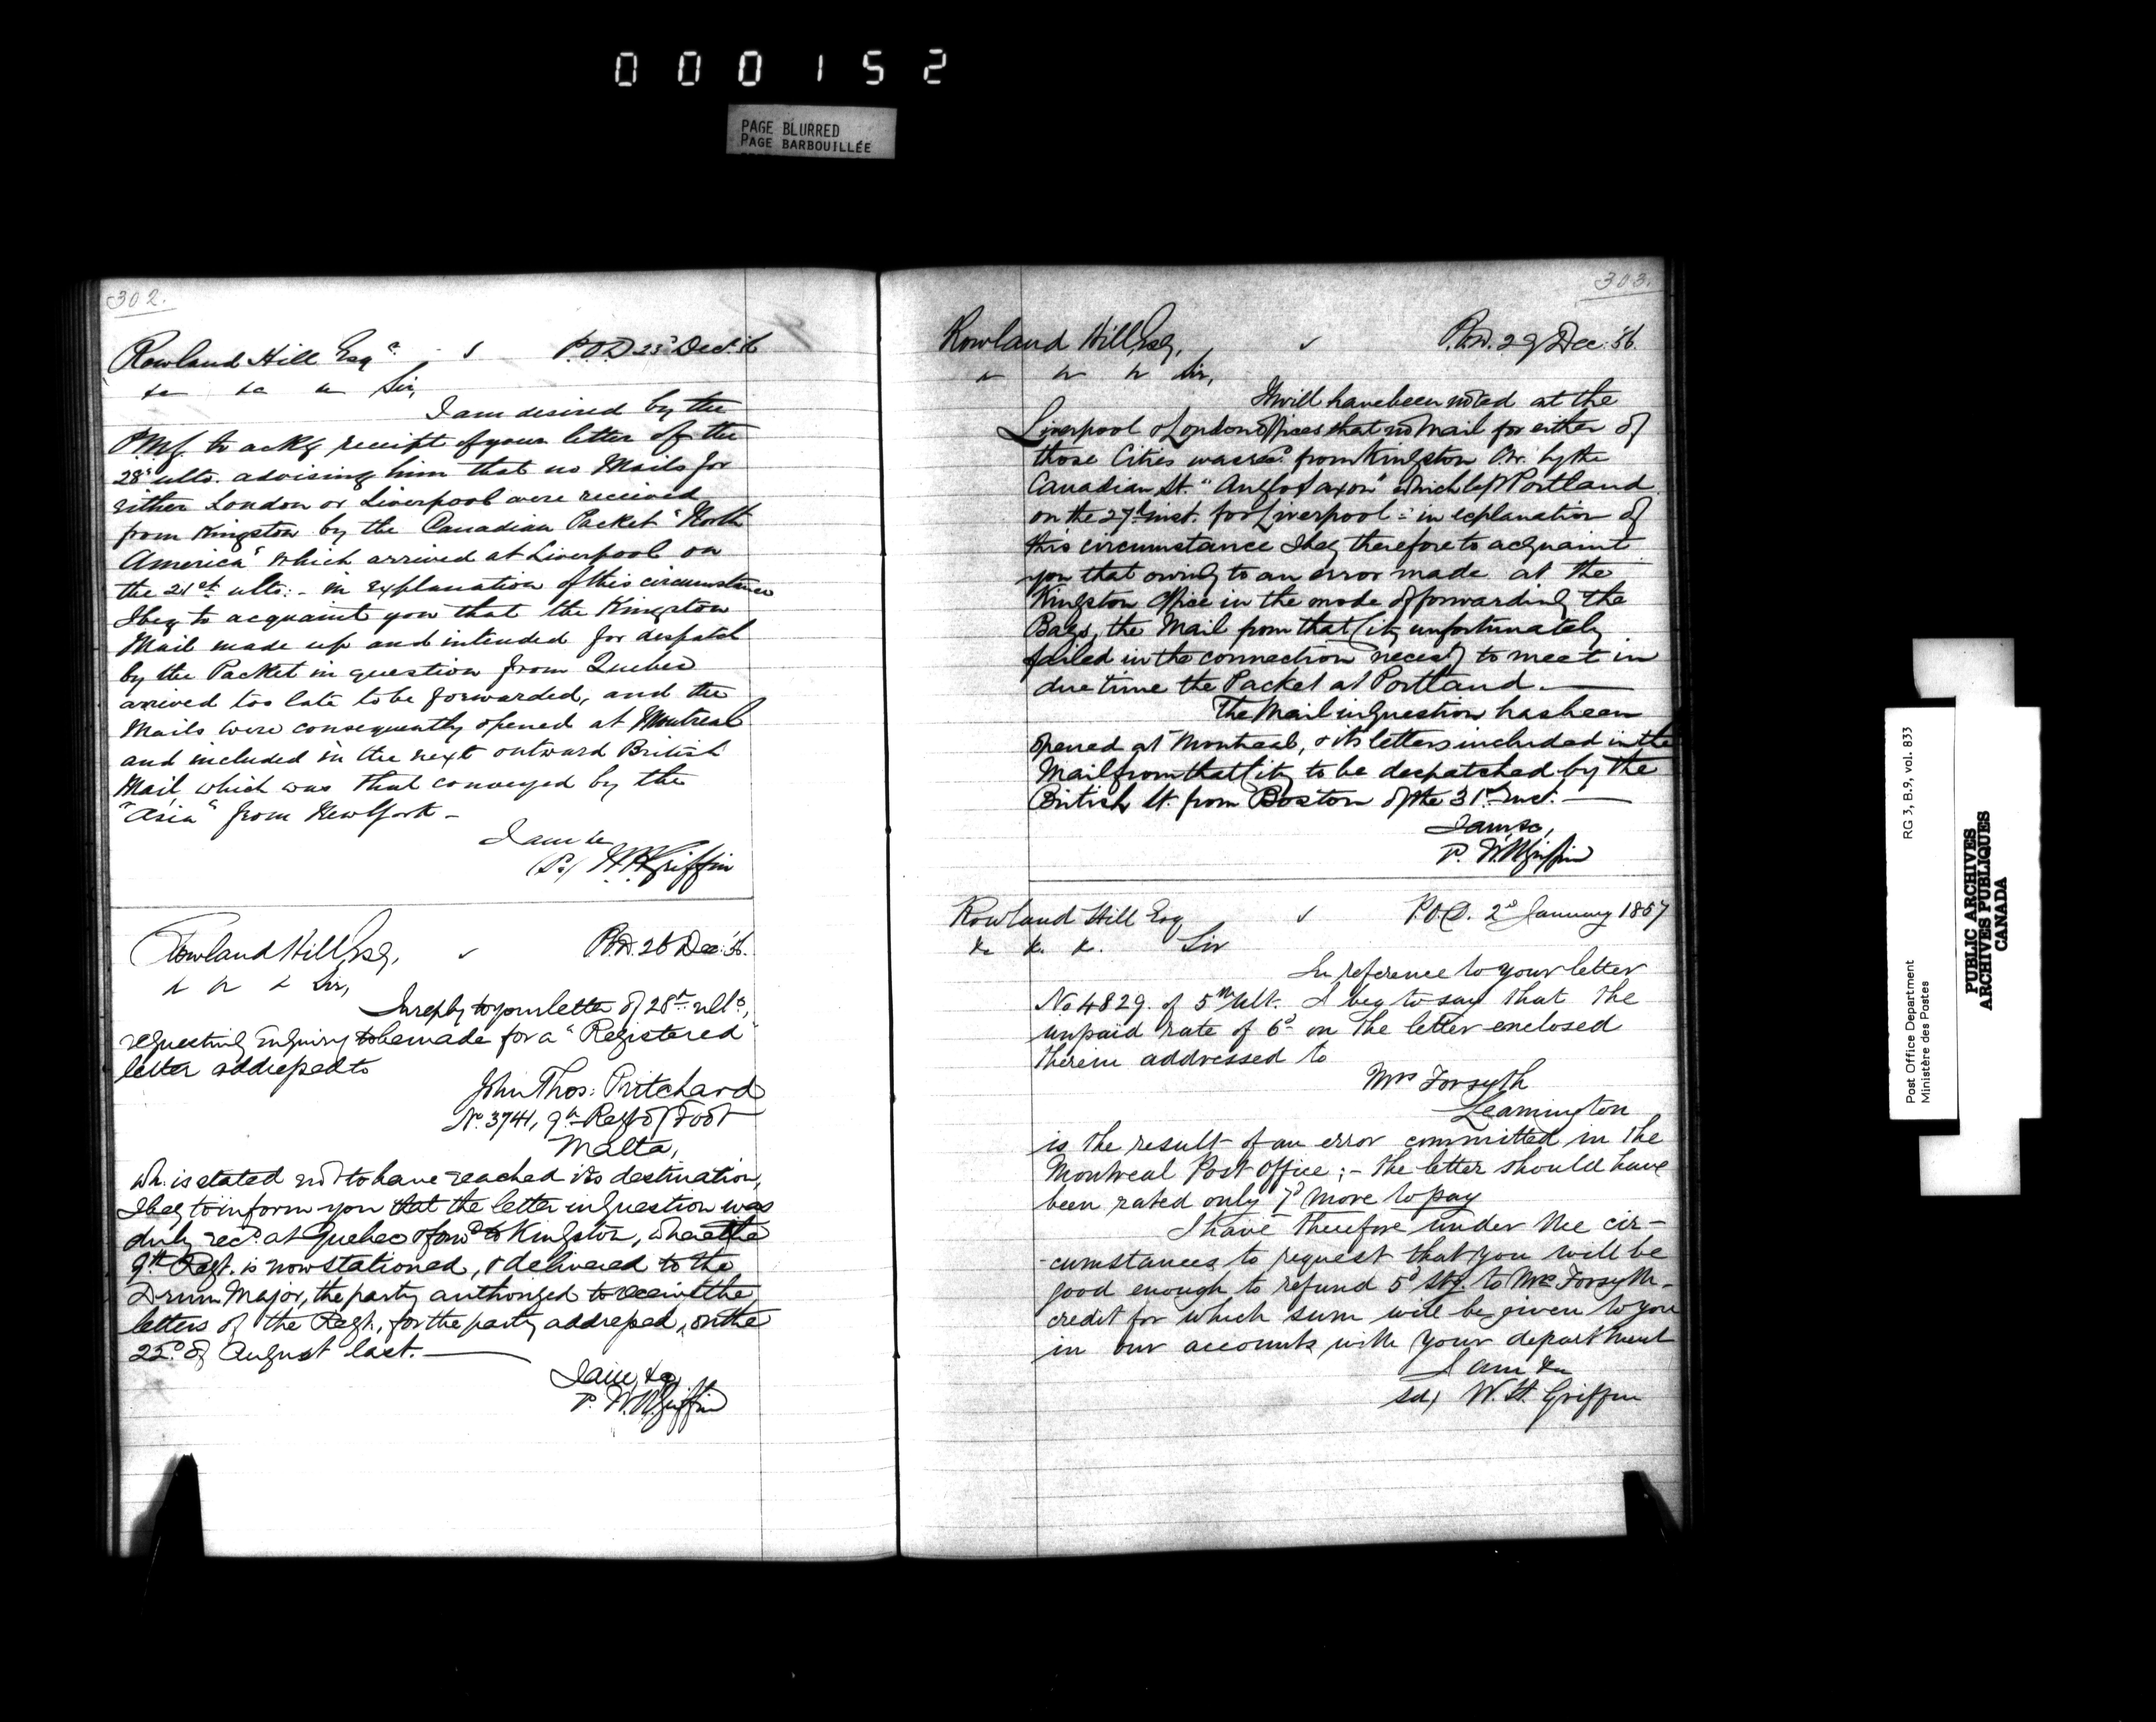 000152
PAGE BLURRED
PAGE BARBOUILLÉE
302.
Rowland Hill Esqr. P.O.D 23d Dec. 56
&c &c &c Sir,
I am desired by the
P.M.G. to ackg receipt of your letter of the
28th ulto. advising him that no Mails for
either London or Liverpool were received
from Kingston by the Canadian Packet "North
America" which arrived at Liverpool on
the 21st ulto:- in explanation of this circumstance
I beg to acquaint you that the Kingston
Mail made up and intended for despatch
by the Packet in question from Quebec
arrived too late to be forwarded, and the
Mails were consequently opened at Montreal
and included in the next outward British
Mail which was that conveyed by the
"Asia" from New York -
I am &c
W.H. Griffin
Rowland Hill, Esq, P.O.D. 26 Dec: 56.
& & & Sir,
In reply to your letter of 28th ulto.,
requesting enquiry to be made for a "Registered"
letter addressed to
John Thos: Pritchard
No. 3741, 9th Regt of Foot
Malta,
wh. is stated not to have reached its destination,
I beg to inform you that the letter in question was
duly recd. at Quebec & forwd to Kingston, where the
9th Regt. is now stationed, & delivered to the
Drum Major, the party authorized to receive the
letters of the Regt., for the party addressed, on the
22d. of August last.
I am, &c,
P. W.H. Griffin
303.
Rowland Hill, Esq, P.O.D. 29 Dec: 56.
& & & Sir,
It will have been noted at the
Liverpool & London Offices that no Mail for either of
those Cities was recd. from Kingston C.W. by the
Canadian St. "Anglo Saxon" which left Portland
on the 27th inst. for Liverpool:- in explanation of
this circumstance I beg therefore to acquaint
you that owing to an error made at the
Kingston Office in the mode of forwarding the
Bags, the Mail from that City unfortunately
failed in the connection necessy to meet in
due time the Packet at Portland.
The Mail in question has been
opened at Montreal, & its letters included in the
Mail from that City to be despatched by the
British St. from Boston of the 31st inst.
I am, &c,
P. W.H. Griffin
Rowland Hill Esq P.O.D. 2d January 1857
&c &c &c. Sir
In reference to your letter
No 4829. of 5th Ult. I beg to say that the
unpaid rate of 6d on the letter enclosed
therein addressed to
Mrs Forsyth
Leamington
is the result of an error committed in the
Montreal Post Office;- the letter should have
been rated only 1d more to pay
I have therefore under the cir-
-cumstances to request that you will be
good enough to refund 5d Stg. to Mrs Forsyth-
credit for which sum will be given to you
in our accounts with your department
I am &c
sd/ W.H. Griffin
Post Office Department RG 3, B.9, vol. 833
Ministère des Postes
PUBLIC ARCHIVES
ARCHIVES PUBLIQUES
CANADA